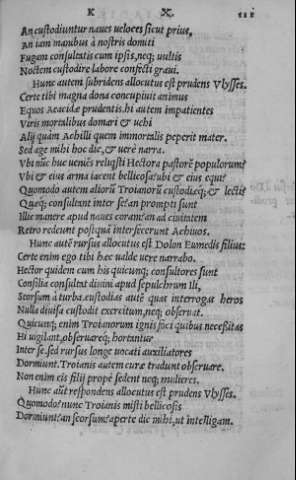 K X. 111
An custodiuntur naues ueloces sicut prius,
An iam manibus à nostris domiti
Fugam consulitis cum ipsis, neq; uultis
Noctem custodire labore confecti graui.
Hunc autem subridens allocutus est prudens Vlysses.
Certe tibi magna dona concupiuit animus
Equos Aeacidæ prudentis. hi autem impatientes
Viris mortalibus domari & uehi
Alij quàm Achilli quem immortalis peperit mater.
Sed age mihi hoc dic, & uerè narra.
Vbi nũc huc ueniẽs reliq̃sti Hectora pastorẽ populorum?
Vbi & eius arma iacent bellicosa? ubi & eius equi?
Quomodo autem aliorũ Troianorũ custodięq; & lecti?
Quæq; consultent inter se? an prompti sunt
Illic manere apud naues coram? an ad ciuitatem
Retro redeunt postquā interfecerunt Achiuos.
Hunc autẽ rursus allocutus est Dolon Eumedis filius:
Certe enim ego tibi hæc ualde uere narrabo.
Hector quidem cum his quicunq; consultores sunt
Consilia consultat diuini apud sepulchrum Ili,
Seorsum à turba. custodias autẽ quas interrogas heros
Nulla diuisa custodit exercitum, neq; obseruat.
Quicunq; enim Troianorum ignis foci quibus necessitas
Hi uigilant, obseruareq; hortantur
Inter se. sed rursus longe uocati auxiliatores
Dormiunt. Troianis autem curæ tradunt obseruare.
Non enim eis filij propè sedent neq; mulieres.
Hunc aũt respondens allocutus est prudens Vlysses.
Quomodo? nunc Troianis misti bellicosis
Dormiunt? an seorsum? aperte dic mihi, ut intelligam.